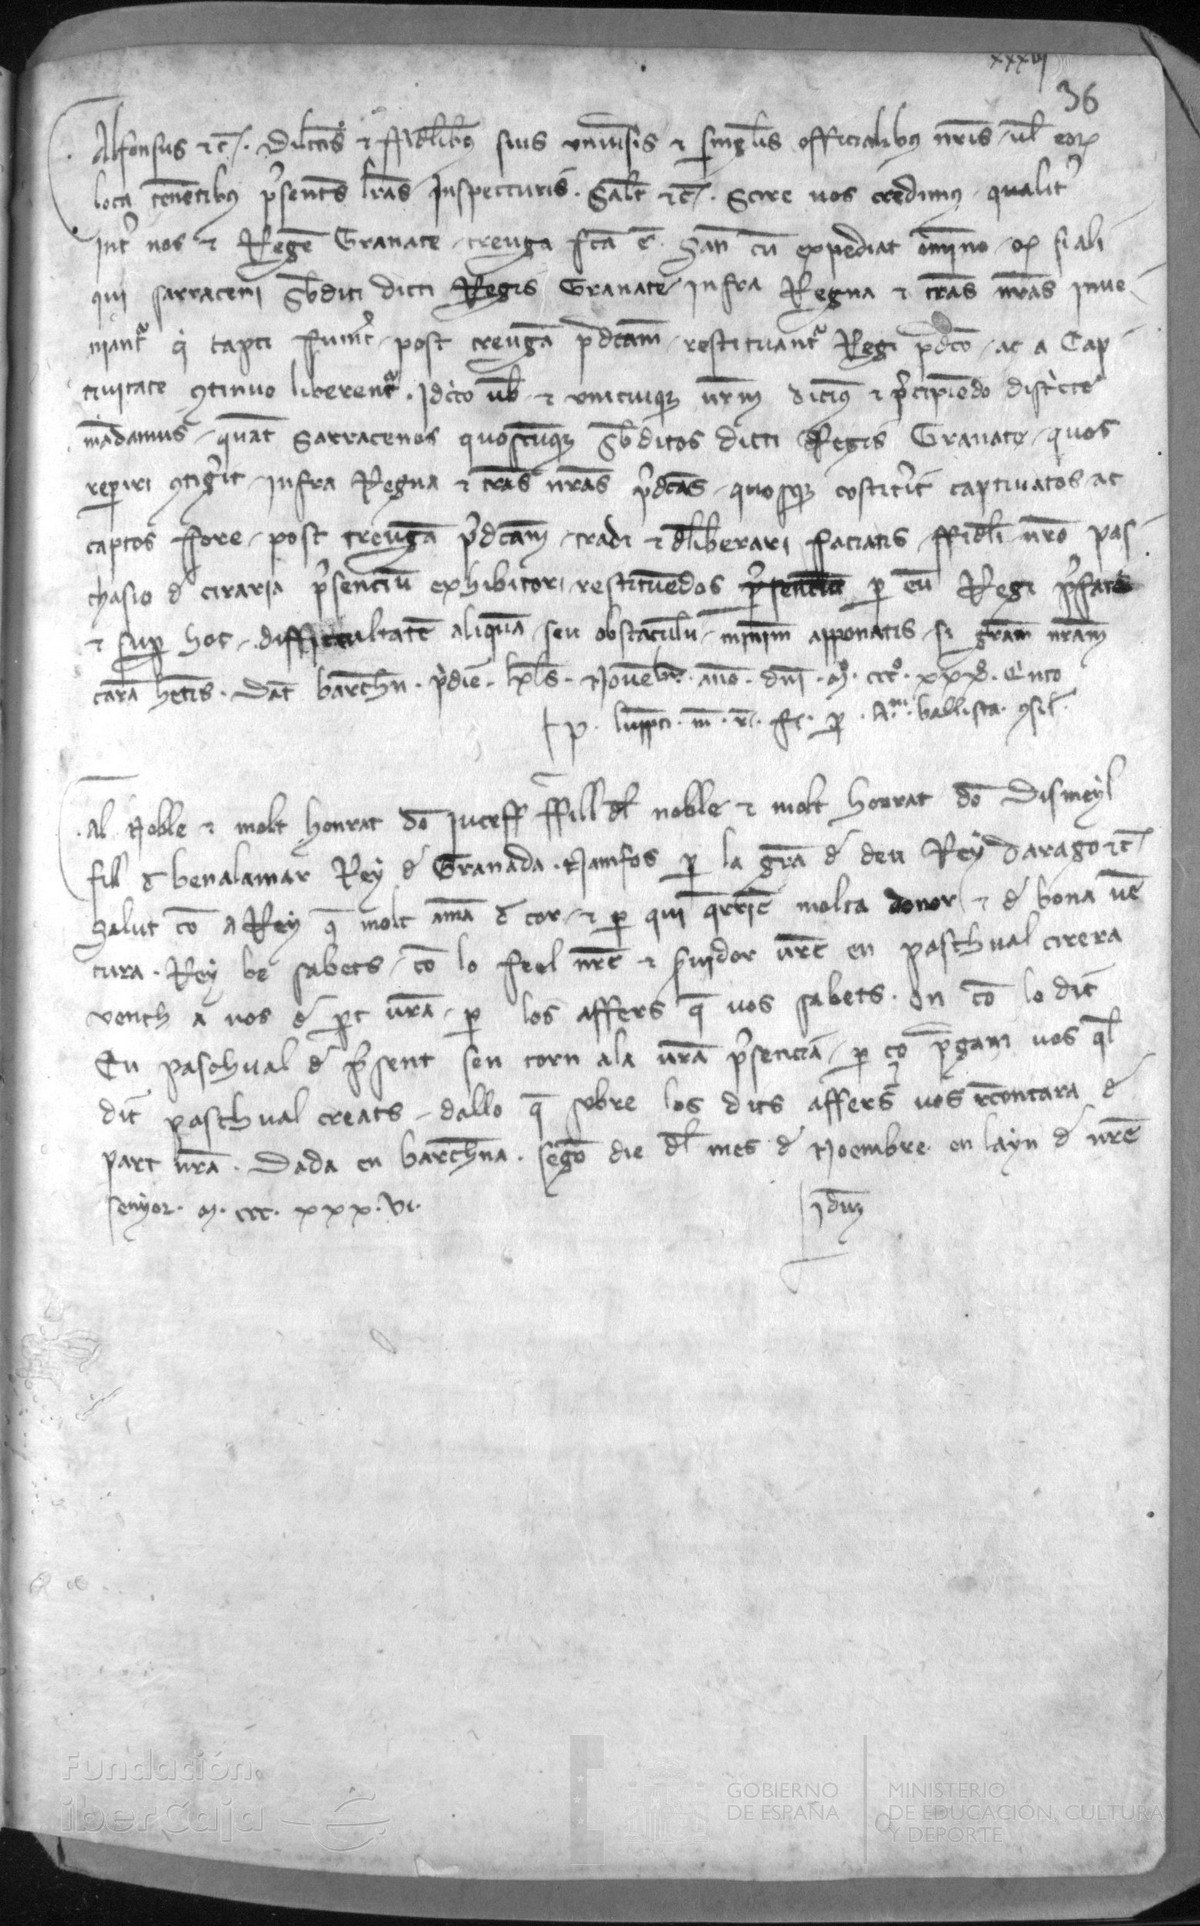 xxxvi
36
Alfonsus etc. Dilectis et ffidelibus suis universis et singulis officialibus nris vel eor
loca tenentibus psentes lras Inspecturis. Salt etc. Scire vos credimus qualit
int nos et Regem Granate treuga fca e. San cu expediat omnino q si ali
qui sarraceni sbditi dicti Regis Granate infra Regna et tras nras inve
niant q capti fuint post treuga pdcam restituant Regi pdco ac a Cap
tivitate gtinuo liberent. Idcco vob et unicuiq vrm dicim et pcipiendo districte
madamus quat Sarracenos quoscuq sbditos dicti Regis Granate quos
repiri gtigit infra Regna et tras nras pdcas quosq costitit captivatos ac
captos fore post treuga pdcam tradi et dliberari faciatis ffideli nro pas
chasio d ciraria psenciu exhibitori restituedos psencia p eu Regi pfato
et sup hoc difficultate aliqua seu obstaculu minim apponatis si gram nram
cara hetis. Dat barchn pdie kls Novebr. ano dni M ccc xxx Qnto
P. luppti m r fc p A.m ballista gsil.
Al Noble et molt honrat do Juceff ffill dl noble et molt honrat do Dismeyl
fill d benalamar Rey de Granada. Namfos p la gra de deu Rey darago etc
Salut co A Rey q molt ama d cor et p qui qrrie molta donor et de bona ve
tura. Rey be sabets co lo feel nre et suidor vre en paschual cirera
vench a nos de pt vra p los affers q vos sabets. On co lo dit
En paschual de psent sen torn ala vra psencia p co pgam vos ql
dit paschual creats dallo q sobre los dits affers vos recontara de
part nra. Dada en barchna. Sego die dl mes de Noembre en layn de nre
senyor. M. ccc. xxx. vi.
Idm
Fundación
iberCaja
GOBIERNO
DE ESPAÑA
MINISTERIO
DE EDUCACIÓN, CULTURA
Y DEPORTE